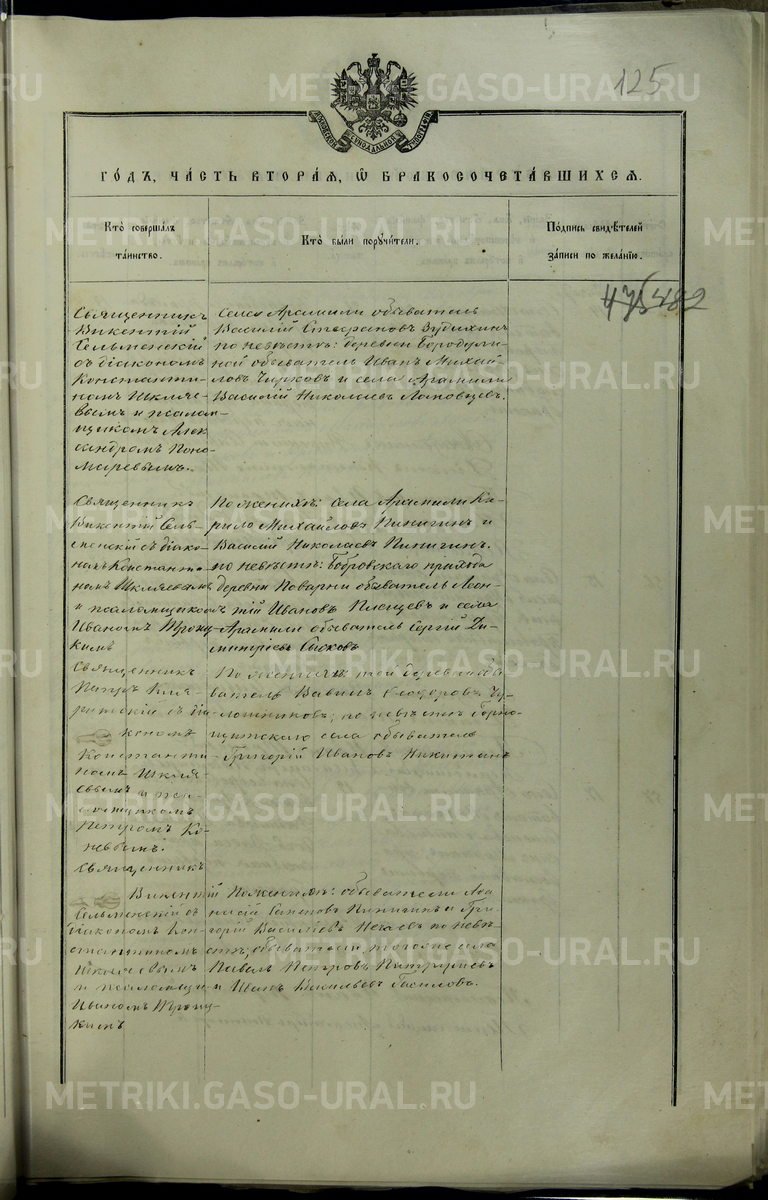 125
МОСКОВСКОЙ СѴНОДАЛЬНОЙ ТИПОГРАФІИ
ГО́ДЪ, ЧА́СТЬ ВТОРА́Я, Ѡ҆ БРАКОСОЧЕТА́ВШИХСЯ.
Кто̀ соверша́лъ
та́инство.
Кто̀ бы́ли порꙋчи́тели.
По́дпись свидѣ́телей
за́писи по жела́нію.
482
Священникъ
Викентій
Сельменскій
съ діакономъ
Константи-
номъ Шкляе-
вымъ и псалом-
щикомъ Алек
сандромъ Поно-
маревымъ.
Села Арамили обыватель
Василій Стефановъ
по невѣстѣ: деревни Бородули-
ной обыватель Иванъ Михай-
ловъ Чирковъ и села Арамили
Василій Николаевъ
Священникъ
Викентій Сель-
менскій съ діако-
номъ Константи-
номъ Шкляевымъ
и псаломщикомъ
Иваномъ Троиц-
кимъ
По женихѣ: села Арамили Ки-
рило Михайловъ Пинигинъ и
Василій Николаевъ Пинигинъ.
по невѣстѣ: Бобровскаго прихода
деревни Поварни обыватель Леон-
тій Ивановъ Плещевъ и села
Арамили обыватель Сергій Ди-
митріевъ Сысковъ
Священникъ
Петръ
съ діа-
кономъ
Константи-
номъ Шкляе-
вымъ и пса-
ломщикомъ
Петромъ Ко-
невымъ.
По женихѣ той деревни обы-
ватель Вавилъ Феодоровъ
по невѣстѣ Горно-
щитскаго села обыватель
Григорій Ивановъ Никитинъ
Священникъ
Викентій
Сельменскій съ
діакономъ Кон-
стантиномъ
Шкляевымъ
и псаломщи-
Иваномъ Троиц-
кимъ
По женихѣ: обыватели
Пинигинъ и Гри-
горій Васильевъ Нечаевъ по невѣ-
стѣ; обыватели того-же села
Павелъ Петровъ
и Иванъ Васильевъ
METRIKI.GASO-URAL.RU